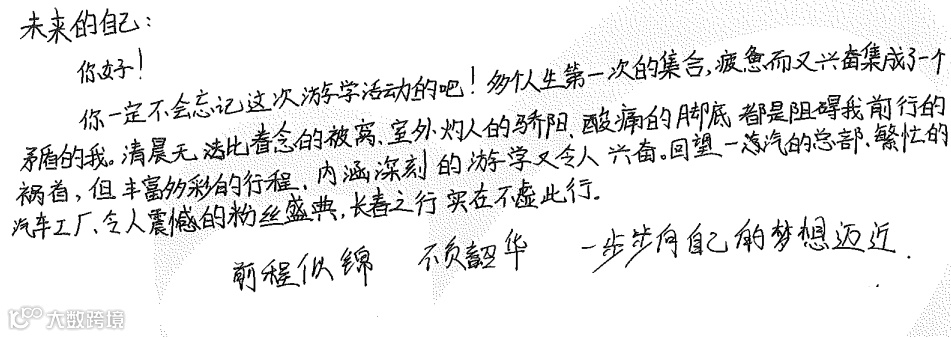 未来的自己：
你好！
你一定不会忘记这次游学活动的吧！多个人生第一次的集合，疲惫而又兴奋集成了一个
矛盾的我。清晨无法比眷念的被窝、室外灼人的骄阳、酸痛的脚底都是阻碍我前行的
祸首，但丰富多彩的行程、内涵深刻的游学又令人兴奋。回望一汽的总部、繁忙的
汽车工厂、令人震憾的粉丝盛典，长春之行实在不虚此行。
前程似锦 不负韶华 一步步向自己的梦想迈近.
大数跨境